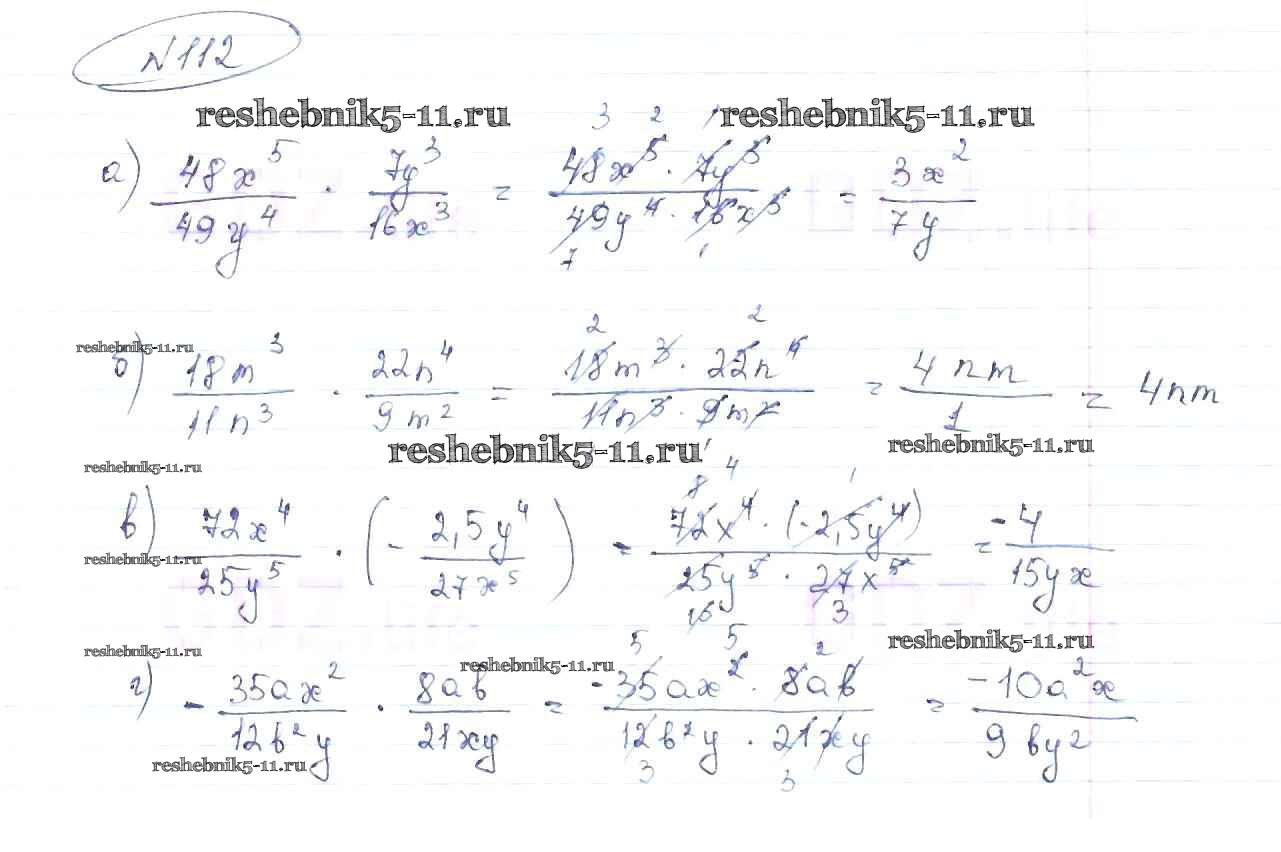 N 112
reshebnik5-11.ru reshebnik5-11.ru
а) 48x^5/49y^4 · 7y^3/16x^3 = 48x^5 · 7y^3/49y^4 · 16x^3 = 3x^2/7y
reshebnik5-11.ru
б) 18m^3/11n^3 · 22n^4/9m^2 = 18m^3 · 22n^4/11n^3 · 9m^2 = 4nm/1 = 4nm
reshebnik5-11.ru reshebnik5-11.ru
reshebnik5-11.ru
в) 72x^4/25y^5 · (- 2,5y^4/27x^5) = 72x^4 · (-2,5y^4)/25y^5 · 27x^5 = -4/15yx
reshebnik5-11.ru
reshebnik5-11.ru reshebnik5-11.ru reshebnik5-11.ru
г) - 35ax^2/12b^2y · 8ab/21xy = -35ax^2 · 8ab/12b^2y · 21xy = -10a^2x/9by^2
reshebnik5-11.ru